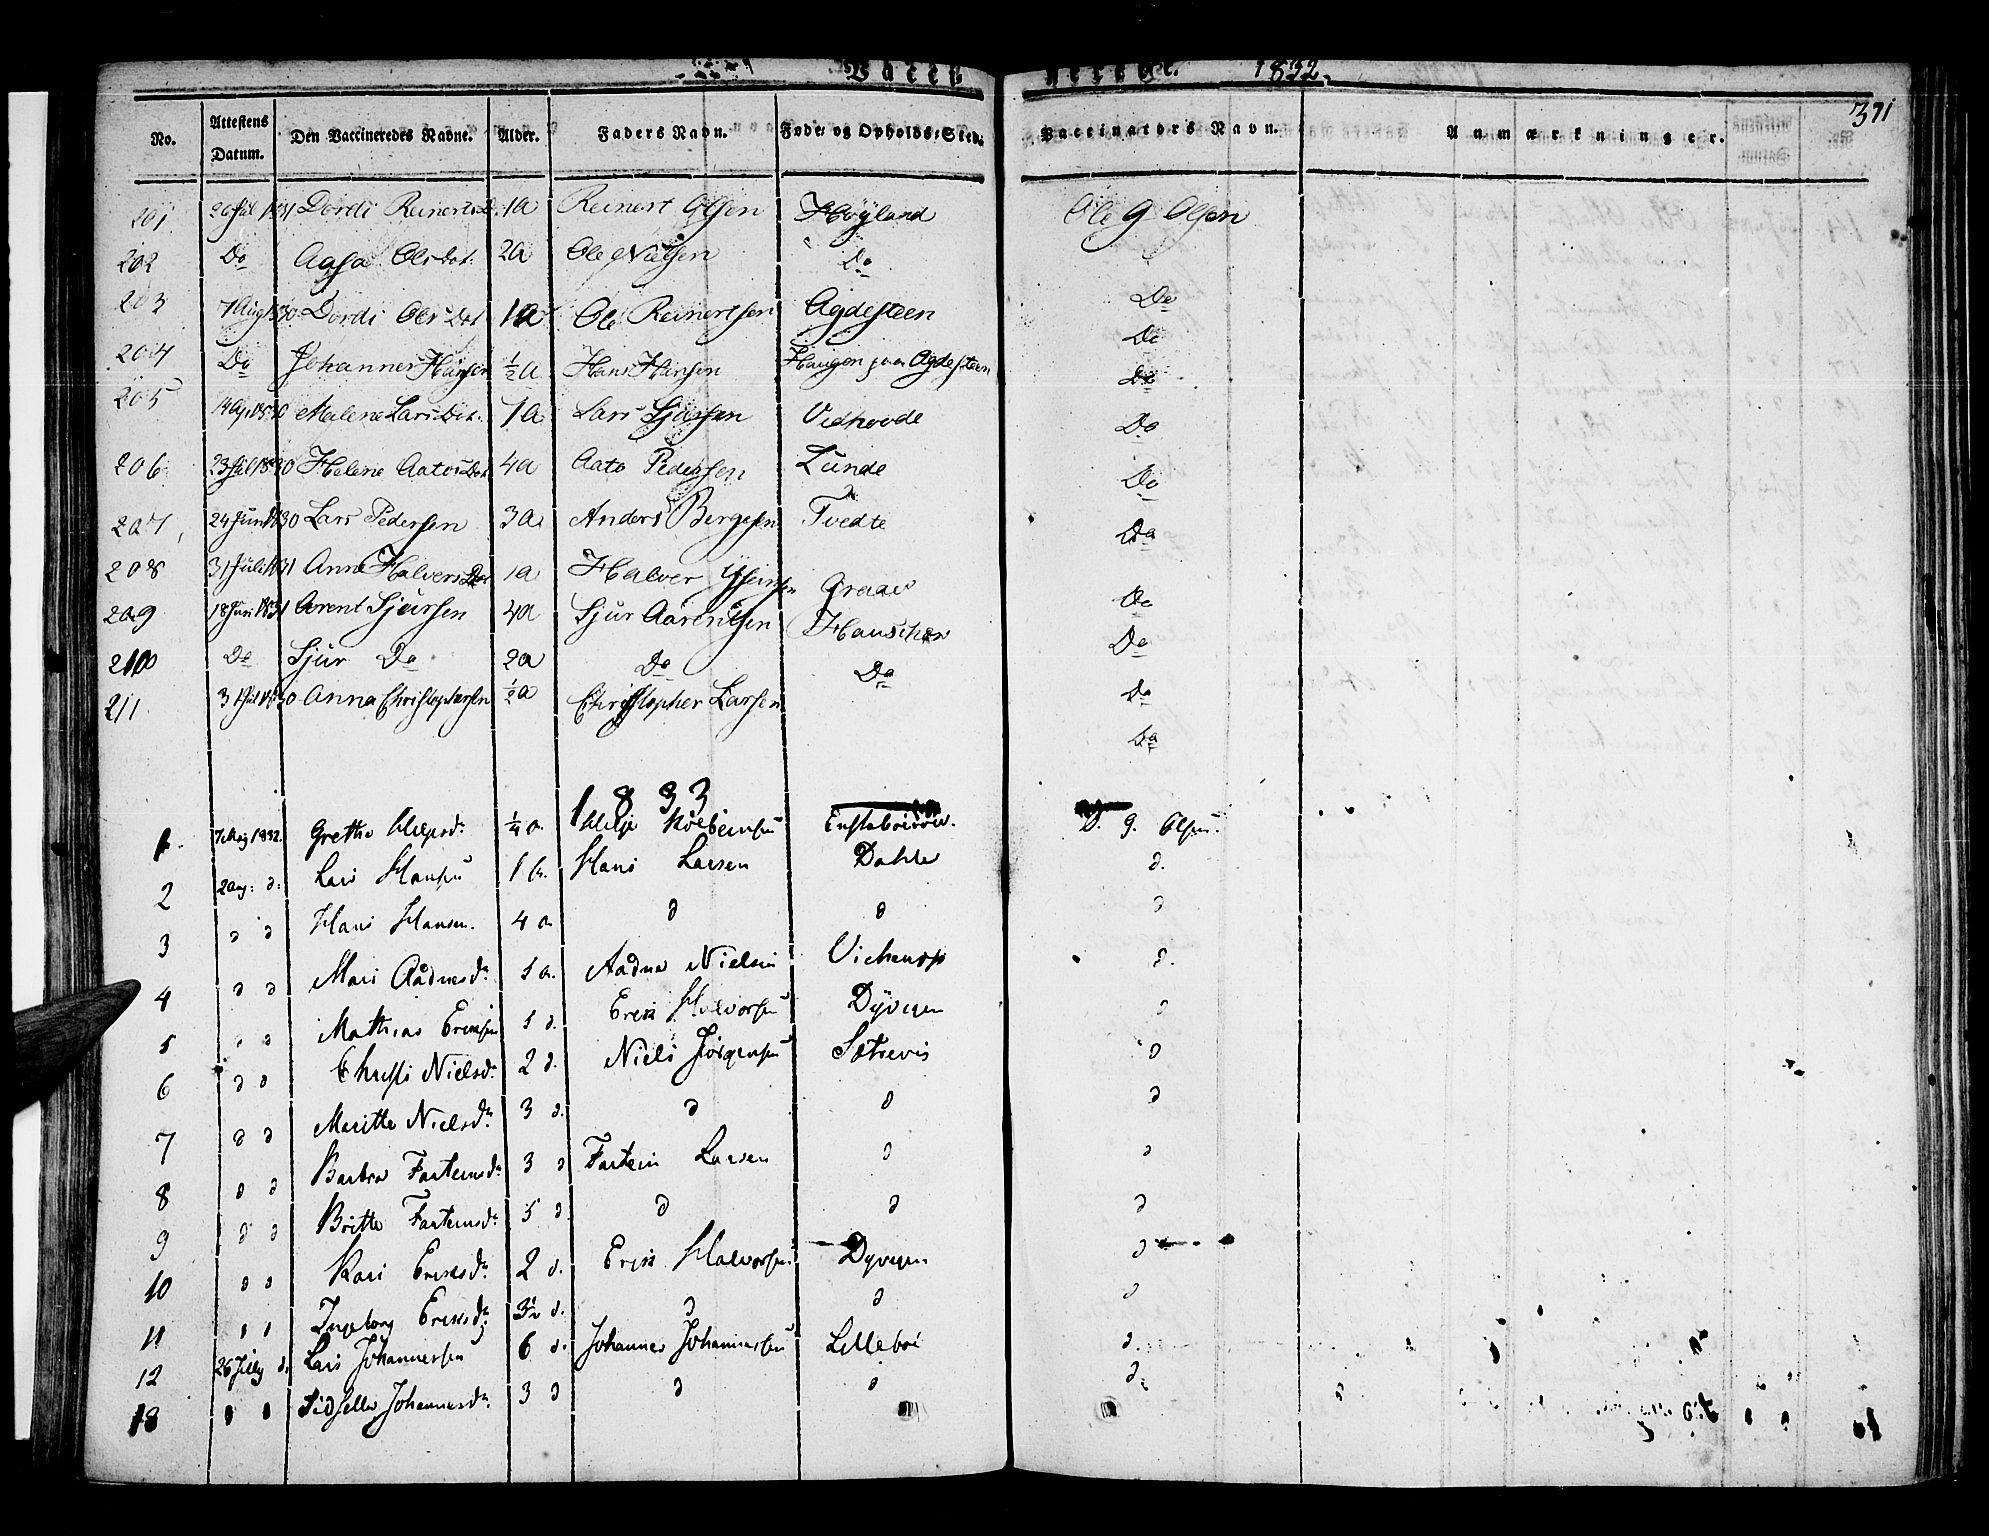 Vacci nerede. 1832.
371
No. Attestens Datum. Den Vaccineredes Navne. Alder. Faders Navn. Føde- og Opholds-Sted. Vaccinators Navn. Anmærkninger.
201 20 Jul 1831 Dordi Reinertsd. 1a Reinert Olsen Høyland Ole G Olsen
202 Do Aasa Olsdat. 2a Ole Nielsen Do Do
203 7 Aug 1830 Dordi Ols Dat 1a Ole Reinertsen Agdesteen Do
204 Do Johannes Hansen ½a Hans Hansen Haugen paa Agdesteen Do
205 14 Ap 1830 Malene Lars Dat. 1a Lars Sjursen Vidhovde Do
206 23 Jul 1830 Helene Aatos Dat 4a Aato Pedersen Lunde Do
207 24 Jun 1830 Lars Pedersen 3a Anders Bergesen Tvedte Do
208 31 Juli 1831 Anna Halvers Dat 1a Halver Graae Do
209 18 Juni 1831 Aarent Sjursen 4a Sjur Aarentsen Do
210 Do Sjur Do 2a Do Do Do
211 3 Jul 1830 Anna Christophersen ½a Christopher Larsen Do
1833
1. 7 May 1832. Grethe ¼ a. O. G. Olsen.
2 2 Aug: d: Lars Hansen 1 a. Hans Larsen Dahle d.
3 d d Hans Hansen. 4 a d d d
4 d d Mari Aadnesdr 1 a. Aadne Nielsen d.
5 d d Mathias Eriksen 1 d. Erik Halvorsen Dyvigen d
6 d d Christi Nielsdr 2 d. Niels Jörgensen Sætrevig d
7 d d Maritte Nielsdr 3 d. d d d
8 d d Barbra Farteinsdr 3 d Fartein Larsen d d
9 d d Britte Farteinsdr 5 d. d d d
10 d d Kari Eriksdr 2 d. Erik Halvorsen Dyvigen d
11 d d Ingeborg Eriksdr 3½ d. d d d
12 26 July d. Lars Johannessen 6 d. Johannes Johannessen Lilleboe d.
13 d d Sidselle Johannesdr 3 d d d d.